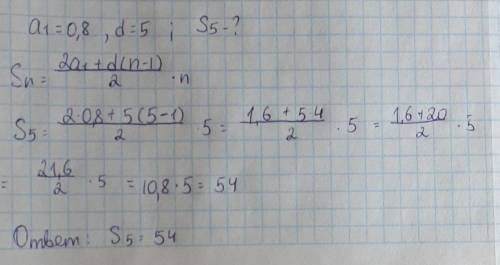 a1 = 0,8 , d = 5 ; S5 - ?
Sn = (2a1 + d(n-1))/2 · n
S5 = (2·0,8 + 5(5-1))/2 · 5 = (1,6 + 5·4)/2 · 5 = (1,6 + 20)/2 · 5
= 21,6/2 · 5 = 10,8 · 5 = 54
Ответ: S5 = 54